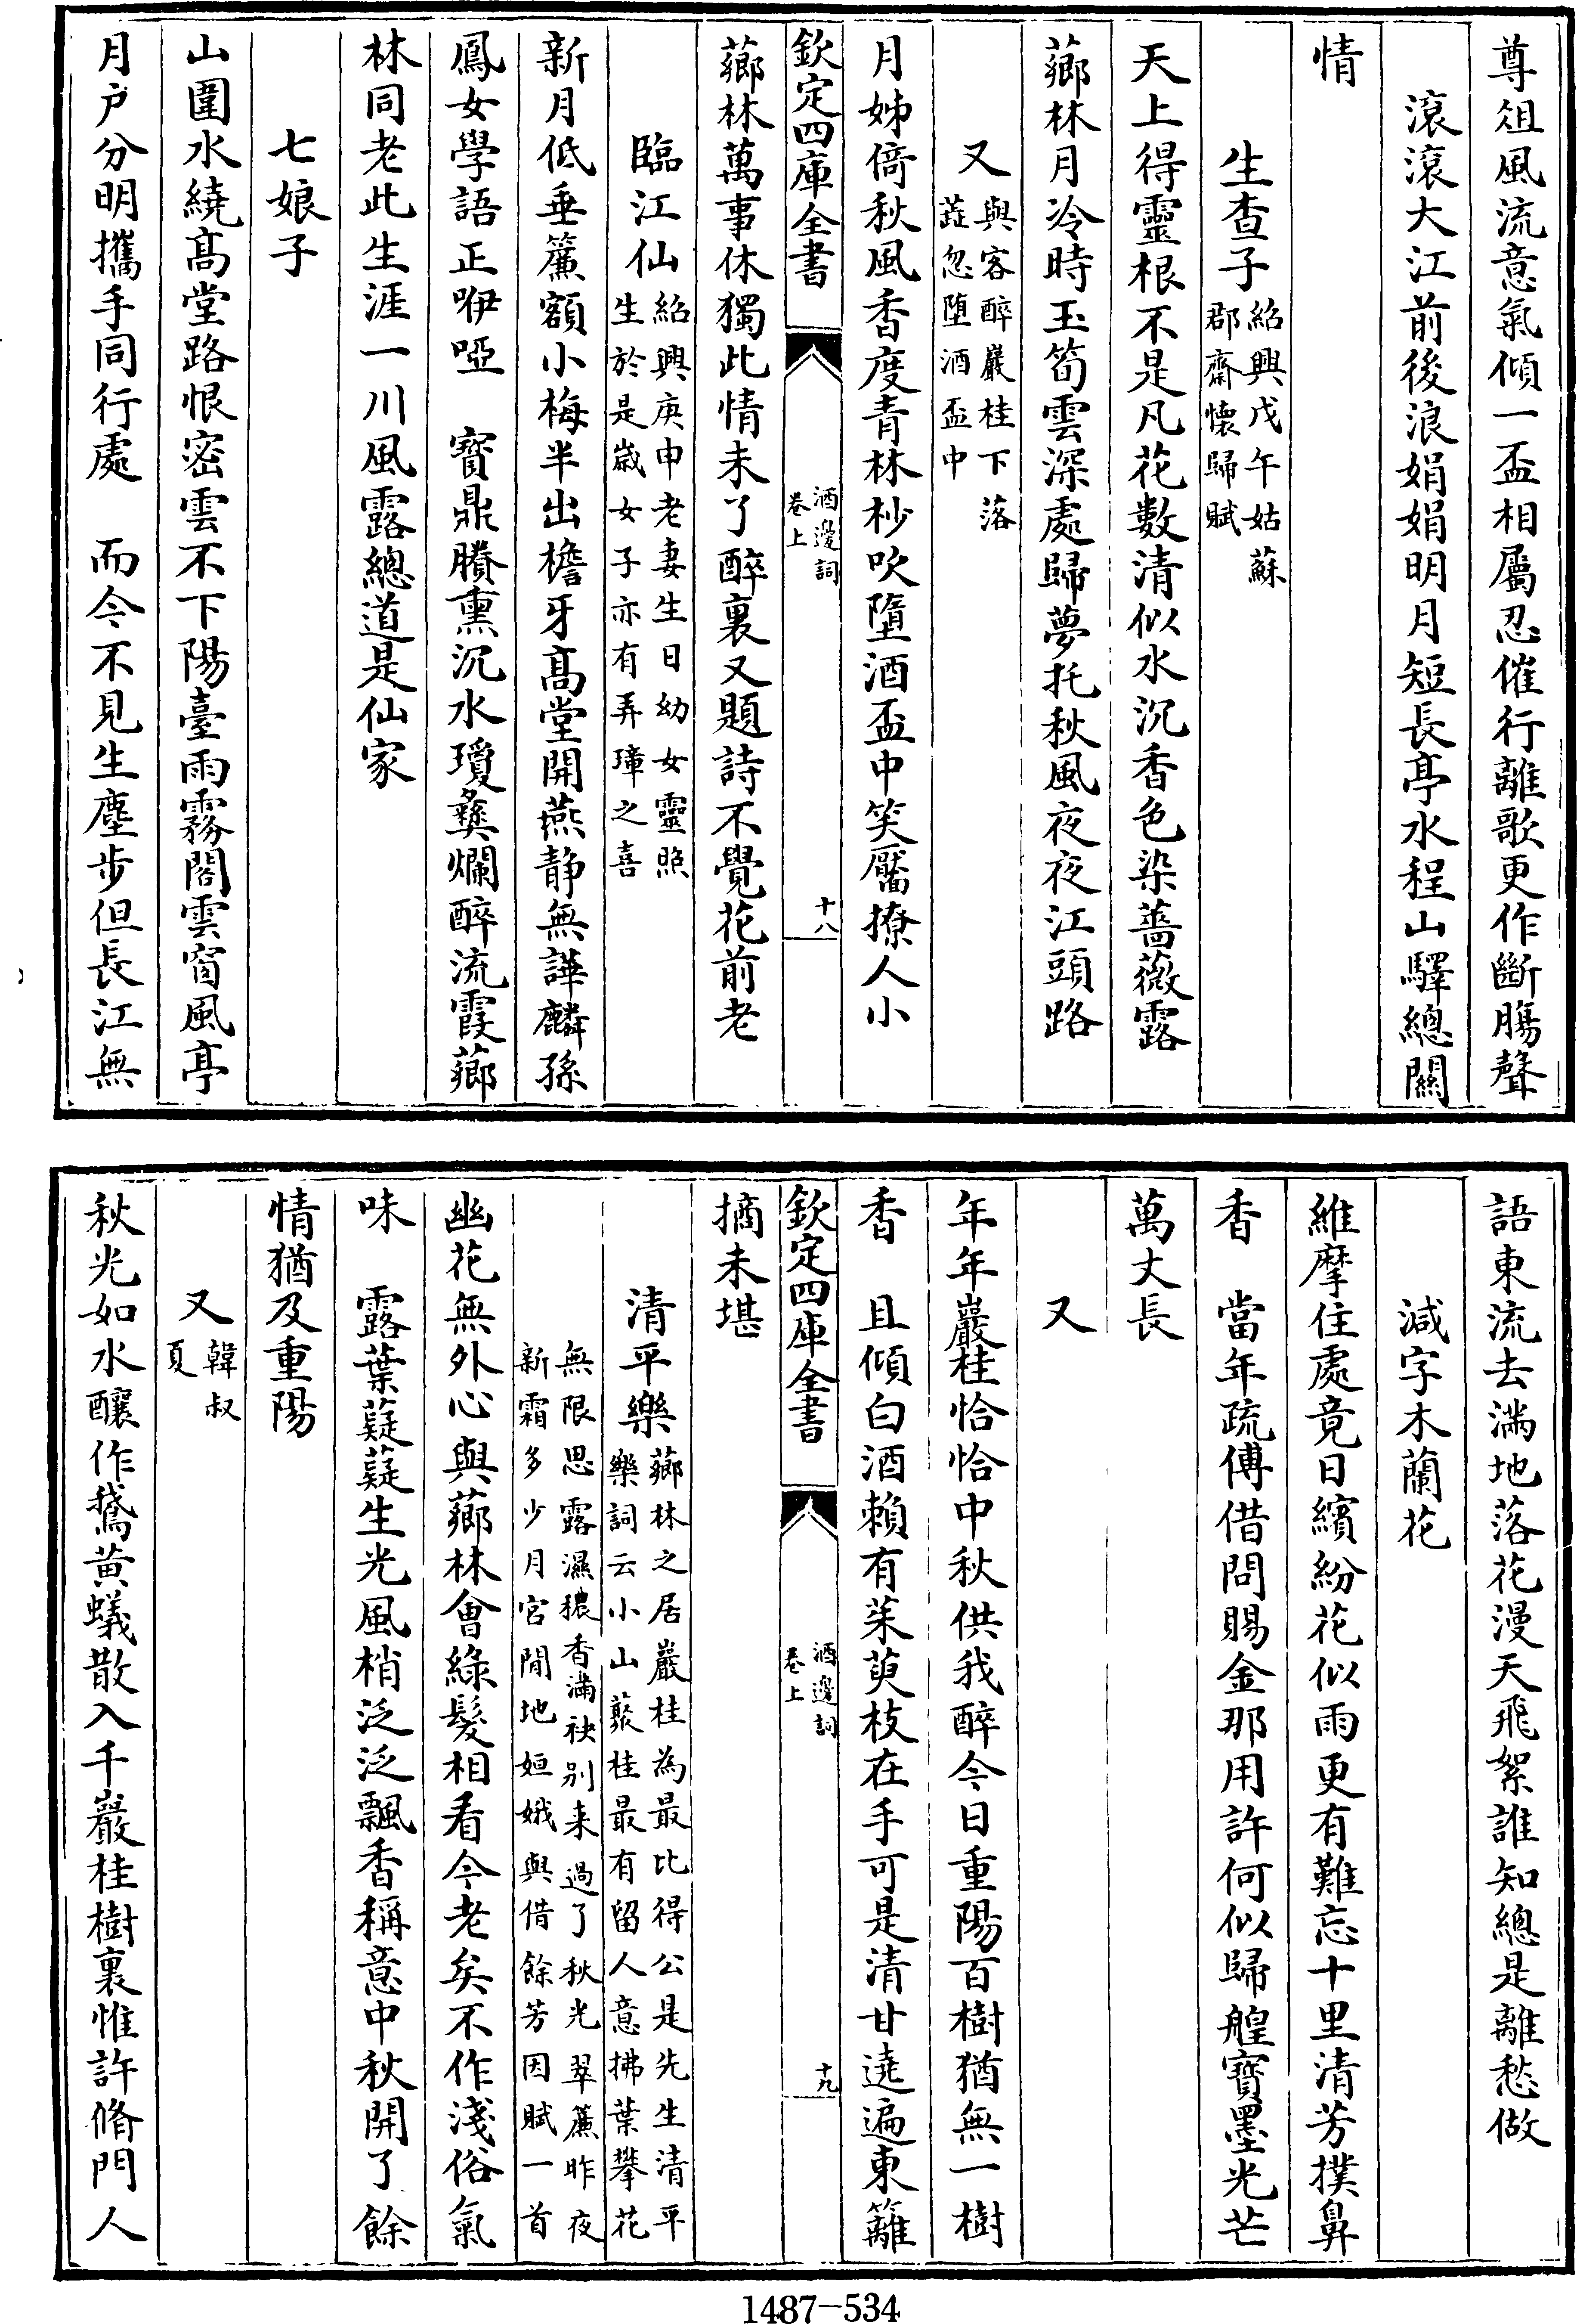 尊俎風流意氣傾一盃相屬忍催行離歌更作斷腸聲
滾滾大江前後浪娟娟明月短長亭水程山驛總關
情
生查子紹興戊午姑蘇
郡齋懷歸賦
天上得靈根不是凡花數清似水沉香色染薔薇露
薌林月冷時玉筍雲深處歸夢托秋風夜夜江頭路
又與客醉巖桂下落
蕋忽墮酒盃中
月姊倚秋風香度青林杪吹墮酒盃中笑靨撩人小
欽定四庫全書
酒邊詞
卷上
十八
薌林萬事休獨此情未了醉裏又題詩不覺花前老
臨江仙紹興庚申老妻生日幼女靈照
生於是嵗女子亦有弄璋之喜
新月低垂簾額小梅半出檐牙髙堂開燕静無譁麟孫
鳳女學語正咿啞　寳鼎賸熏沉水瓊彝爛醉流霞薌
林同老此生涯一川風露總道是仙家
七娘子
山圍水繞髙堂路恨密雲不下陽臺雨霧閣雲窗風亭
月户分明攜手同行處　而今不見生塵步但長江無
語東流去滿地落花漫天飛絮誰知總是離愁做
減字木蘭花
維摩住處竟日繽紛花似雨更有難忘十里清芳撲鼻
香　當年疏傅借問賜金那用許何似歸艎寳墨光芒
萬丈長
又
年年巖桂恰恰中秋供我醉今日重陽百樹猶無一樹
香　且傾白酒賴有茱萸枝在手可是清甘遶遍東籬
欽定四庫全書
酒邊詞
卷上
十九
摘未堪
清平樂薌林之居巖桂為最比得公是先生清平
樂詞云小山藂桂最有留人意拂葉攀花
無限思露濕穠香滿袂别来過了秋光翠簾昨夜
新霜多少月宫閒地姮娥與借餘芳因賦一首
幽花無外心與薌林會綠髮相看今老矣不作淺俗氣
味　露葉薿薿生光風梢泛泛飄香稱意中秋開了餘
情猶及重陽
又韓叔
夏
秋光如水釀作鵞黄蟻散入千巖桂樹裏惟許脩門人
1487-534